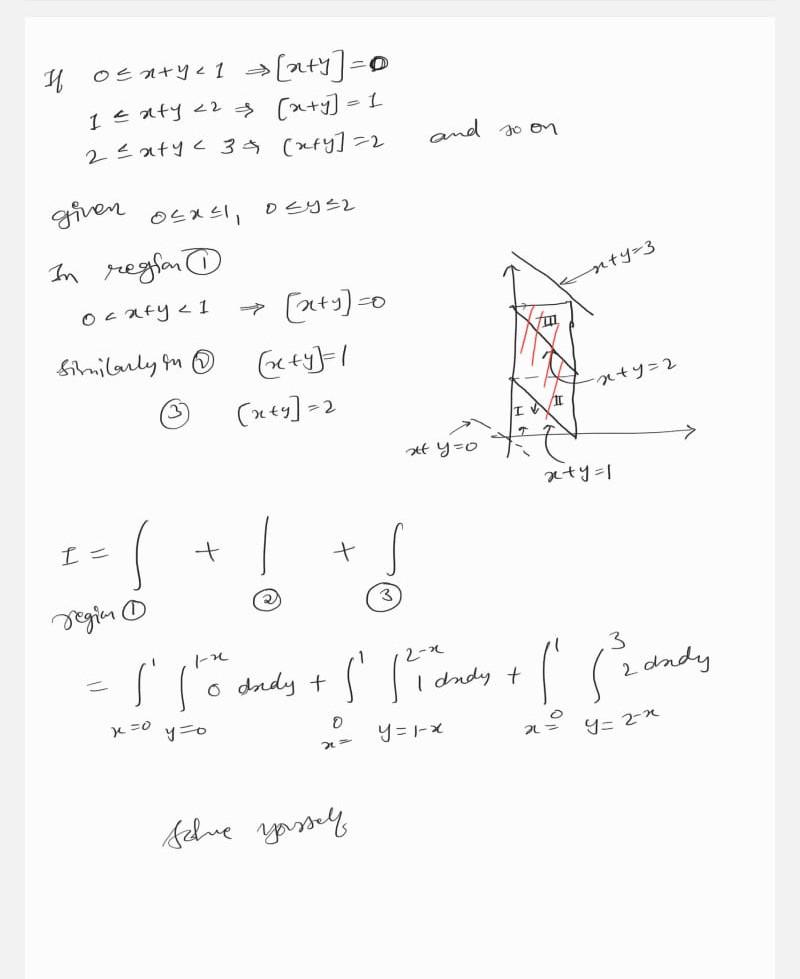 If 0 ≤ x+y < 1 ⇒ [x+y] = 0
1 ≤ x+y < 2 ⇒ [x+y] = 1
2 ≤ x+y < 3 ⇒ [x+y] = 2 and so on
given 0 ≤ x ≤ 1, 0 ≤ y ≤ 2
In region ①
0 < x+y < 1 ⇒ [x+y] = 0
Similarly in ② [x+y] = 1
③ [x+y] = 2
x+y=3
III
x+y=2
I II
x+y=0
x+y=1
I = ∫ + ∫ + ∫
region ① ② ③
= ∫_{x=0}^{1} ∫_{y=0}^{1-x} 0 dxdy + ∫_{x=0}^{1} ∫_{y=1-x}^{2-x} 1 dxdy + ∫_{x=0}^{1} ∫_{y=2-x}^{3} 2 dxdy
Solve yourself